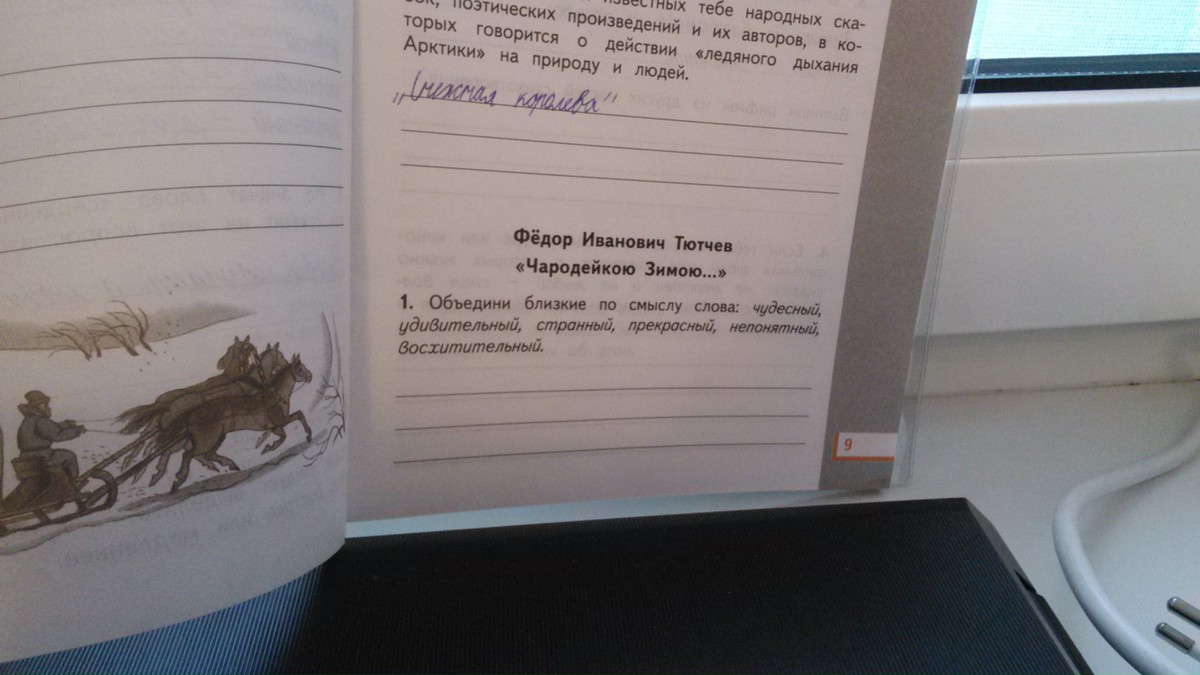 известных тебе народных ска-
зок, поэтических произведений и их авторов, в ко-
торых говорится о действии «ледяного дыхания
Арктики» на природу и людей.
„Снежная королева"
Фёдор Иванович Тютчев
«Чародейкою Зимою...»
1. Объедини близкие по смыслу слова: чудесный,
удивительный, странный, прекрасный, непонятный,
восхитительный.
9